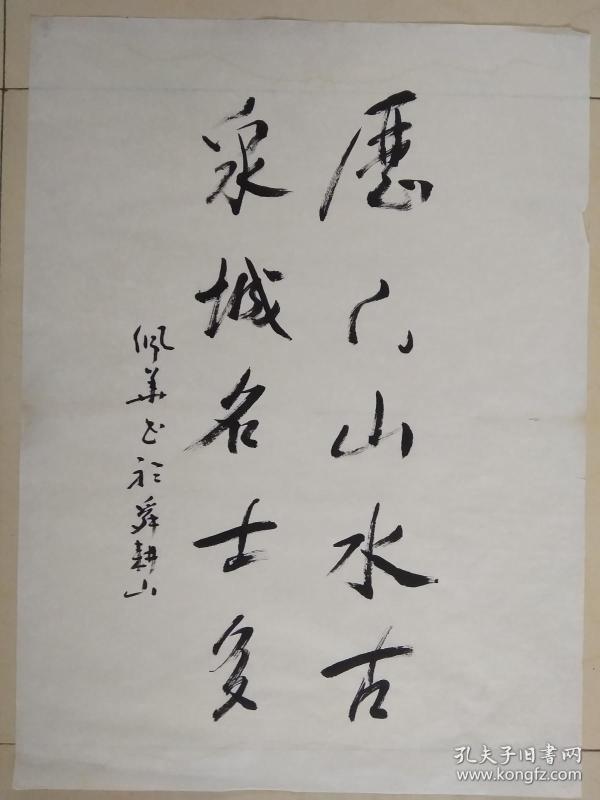 歷下山水古
泉城名士多
佩華书於舜耕山
孔夫子旧書网
www.kongfz.com